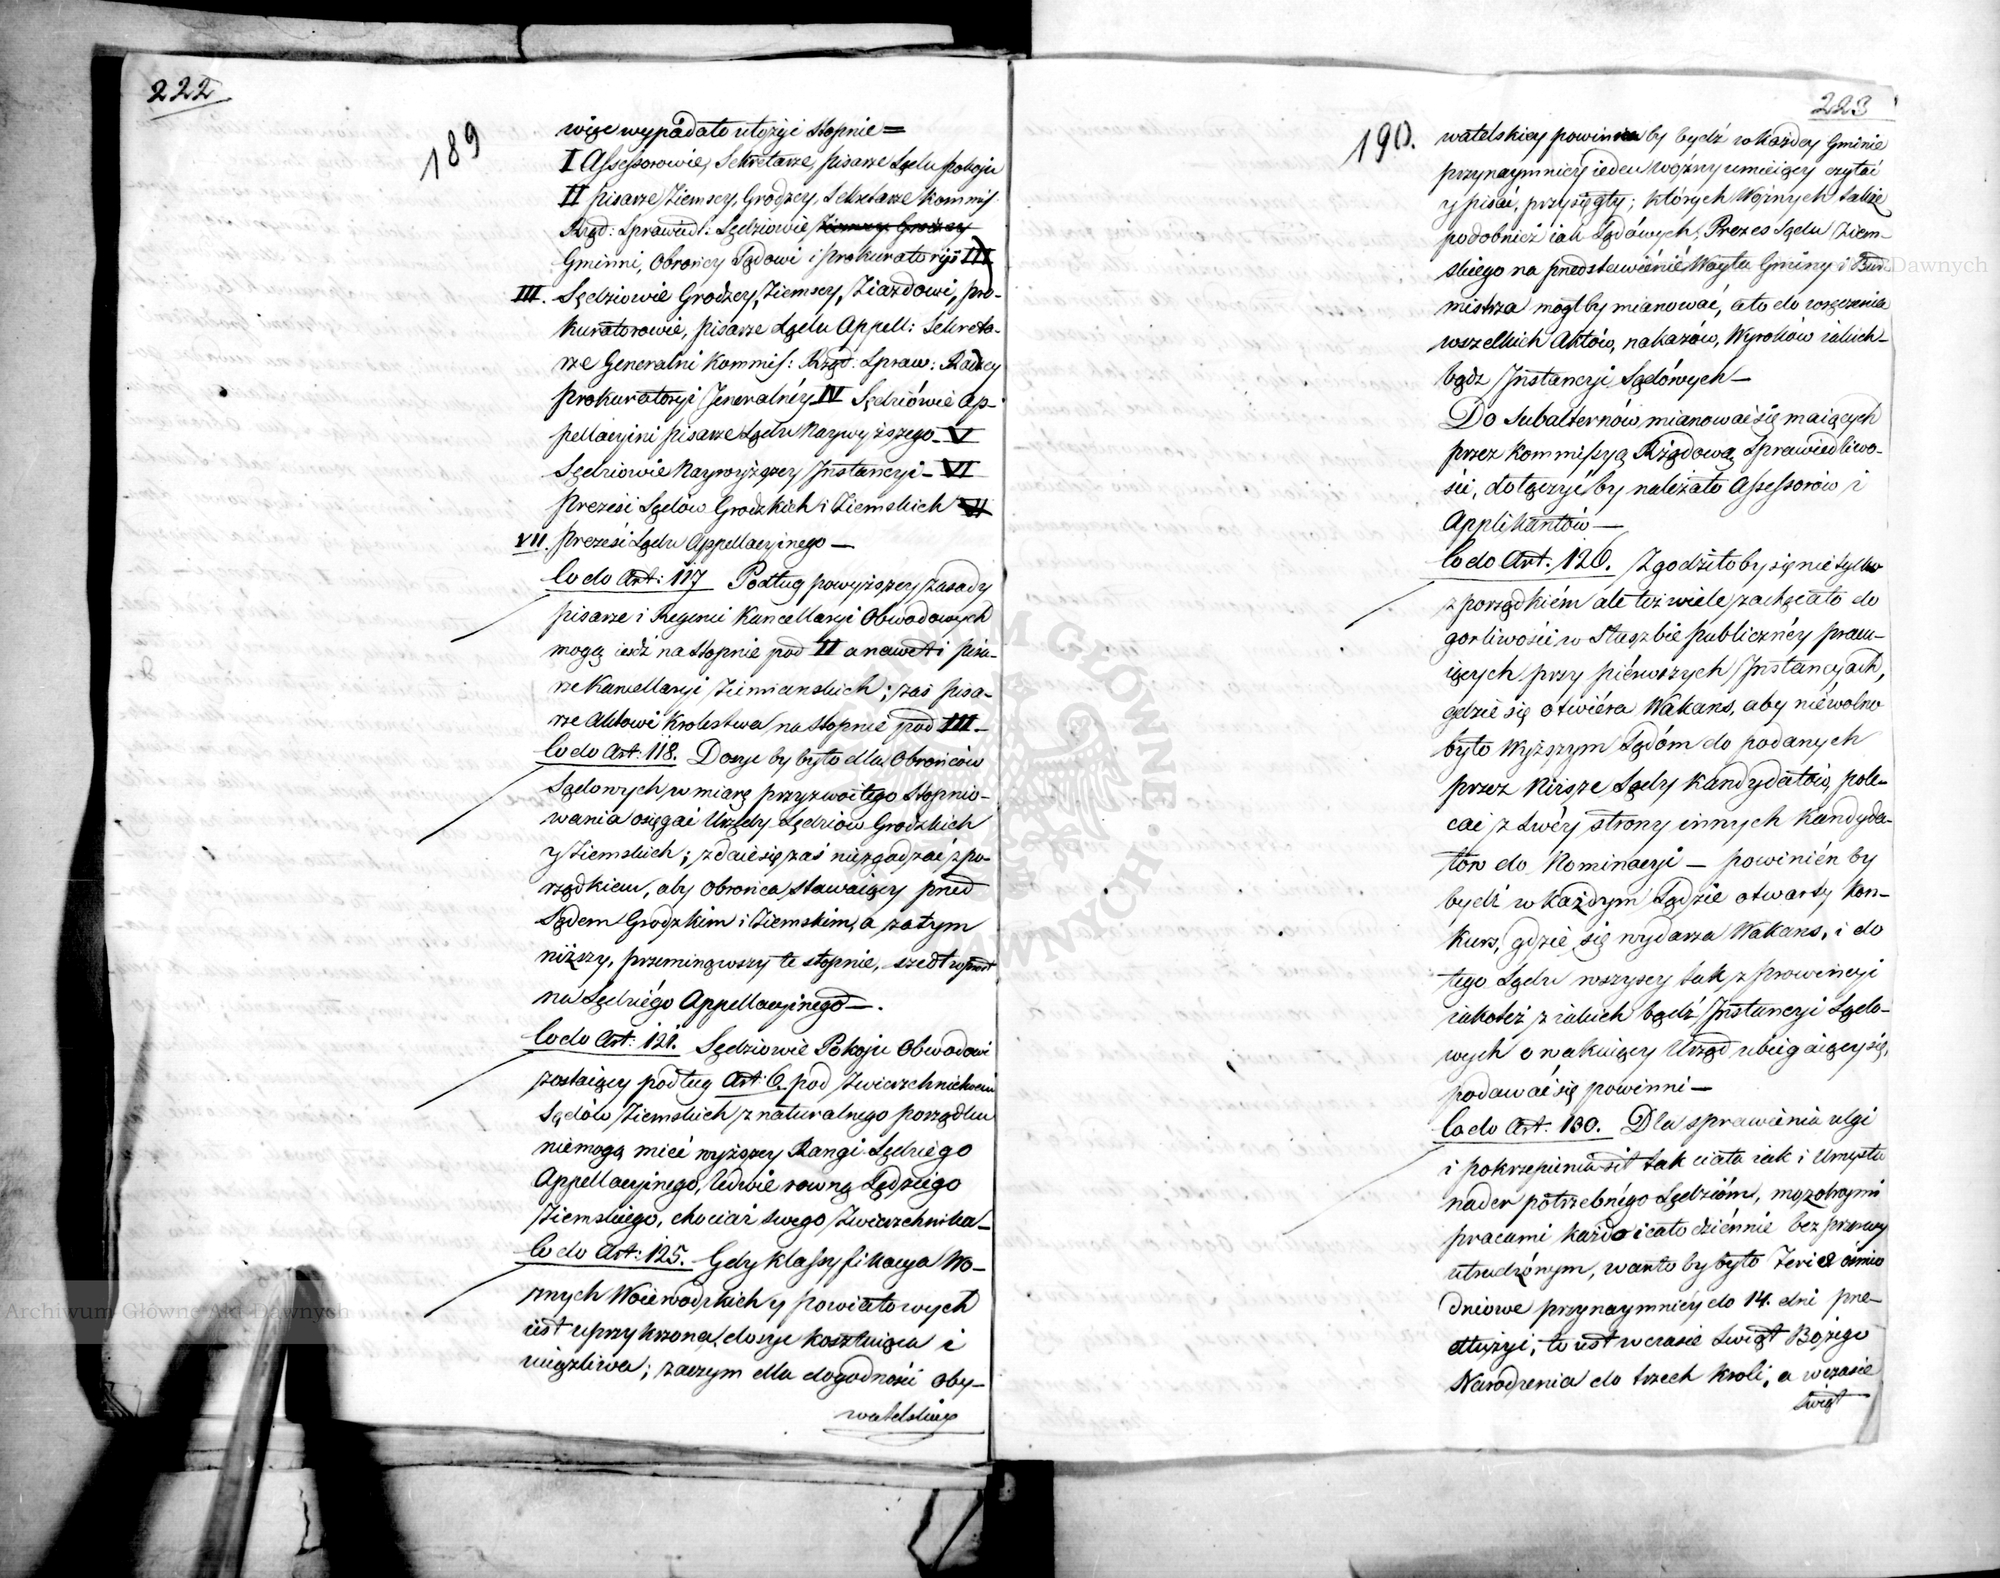 222
189
więc wypadało ułożyć stopnie =
I Assessorowie, Sekretarze, pisarze Sądu pokoju
II pisarze Ziemscy, Grodzcy, Sekretarze Kommis.
Rząd: Sprawiedl: Sędziowie Ziemscy Grodzcy
Gminni, Obrońcy Sądowi i prokuratoryi III
III. Sędziowie Grodzcy, Ziemscy, Ziazdowi, pro-
kuratorowie, pisarze Sądu Appell: Sekreta-
rze Generalni Kommis: Rząd. Spraw: Radzcy
prokuratoryi Jeneralnéy IV Sędziowie Ap-
pellacyini pisarze Sądu Naywyższego V
Sędziowie Naywyższey Instancyi - VI
prezesi Sądów Grodzkich i Ziemskich VII
VII. prezesi Sądu Appellacyinego —
Co do Art: 117 Podług powyższey zasady
pisarze i Regenci Kancellaryi Obwodowych
mogą iść na stopnie pod II a nawet i pisa-
rze Kancellaryi Ziemianskich; zas pisa-
rze Aktowi Krolestwa na stopnie pod III.-
Co do Art: 118. Dosyc by było dla Obrońców
Sądowych w miarę przyzwoitego stopnio-
wania osięgać Urzędy Sędziów Grodzkich
y Ziemskich; zdaie się zaś niezgadzać z po-
rządkiem, aby Obrońca stawaiący przed
Sądem Grodzkim i Ziemskim, a zatym
niższy, przeminąwszy te stopnie, szedł wprost
na Sędziégo Appellacyinego —.
Co do Art: 121. Sędziowie Pokoju Obwodowi
zostaiący podług Art: 6. pod Zwierzchnictwem
Sądów Ziemskich z naturalnego porządku
niemogą mieć wyższey Rangi Sędziego
Appellacyinego, ledwie rowną Sędziego
Ziemskiego, chociaż swego Zwierzchnika -
Co do Art: 125. Gdy klassyfikacya Wo-
znych Woiewodzkich y powiatowych
iest uprzykrzona, dosyc kosztuiąca i
uciążliwa; zaczym dla dogodności oby-
watelskiey
223
190.
watelskiey powinien by bydź w każdey Gminie
przynaymniey ieden Woźny umieiący czytać
y pisać, przysięgły; których Woźnych także
podobnież iak Sądowych, Prezes Sądu Ziem-
skiego na przedstawiénie Wóyta Gminy i Bur-
mistrza mogłby mianować, a to do wręczenia
wszelkich Aktów, nakazów, Wyroków iakich-
bądz Instancyi Sądówych —
Do Subalternów mianować się maiących
przez Kommissyą Rządową Sprawiedliwo-
ści, dołączyć by należało Assessorów i
Applikantów —
Co do Art. 126. Zgodziłoby się nie tylko
z porządkiém ale też wiele zachęcało do
gorliwości w służbie publicznéy pracu-
iących przy piérwszych Instancyach,
gdzie się otwiéra Wakans, aby niéwolno
było Wyższym Sądóm do podanych
przez Niższe Sądy Kandydatów, pole-
cać z swéy strony innych Kandyda-
tów do Nominacyi — powinién by
bydź w każdym Sądzie otwarty Kon-
kurs, gdzie się wydarza Wakans, i do
tego Sądu wszyscy tak z prowincyi
iakoteż z iakich bądź Instancyi Sądo-
wych o wakuiący Urząd ubiegaiący się,
podawać się powinni —
Co do Art: 130. Dla sprawienia ulgi
i pokrzepienia sił tak ciała iak i Umysłu
nader potrzebnégo Sędzióm, mozolnymi
pracami każdo i cało dziénnie bez przerwy
utrudzónym, warto by było Ferie ośmio
dniowe przynaymniéy do 14. dni prze-
dłużyć; to iest w czasie Swiąt Bożego
Narodzenia do trzech Kroli, a w czasie
Swiąt
Archiwum Główne Akt Dawnych